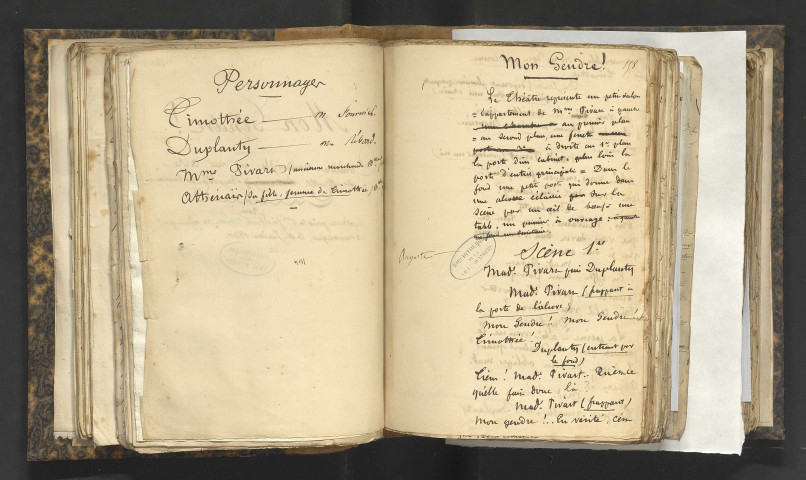 Personnages
Timothée — m.
Duplanty — m.
Mme Pivart (ancienne marchande
Athénaïs (sa fille, femme de Timothée)
Mon Gendre!
Le théâtre représente un petit salon
appartement de Mme Pivart à gauche
au premier plan
= au second plan, une fenêtre
à droite au 1er plan
la porte d'un cabinet, plus loin la
porte d'entrée principale = Dans le
fond une petite porte qui donne dans
une alcove éclairée sur la
scène par un œil de bœuf = une
table, un panier à ouvrage
Scène 1re
Mad. Pivart puis Duplanty
Mad. Pivart (frappant à
la porte de l'alcove)
Mon Gendre! Mon Gendre!
Timothée
Duplanty (entrant par
le fond)
Tiens! Mad. Pivart.. Qu'est-ce
qu'elle fait donc là?
Mad. Pivart (frappant)
Mon gendre!.. En vérité, c'en